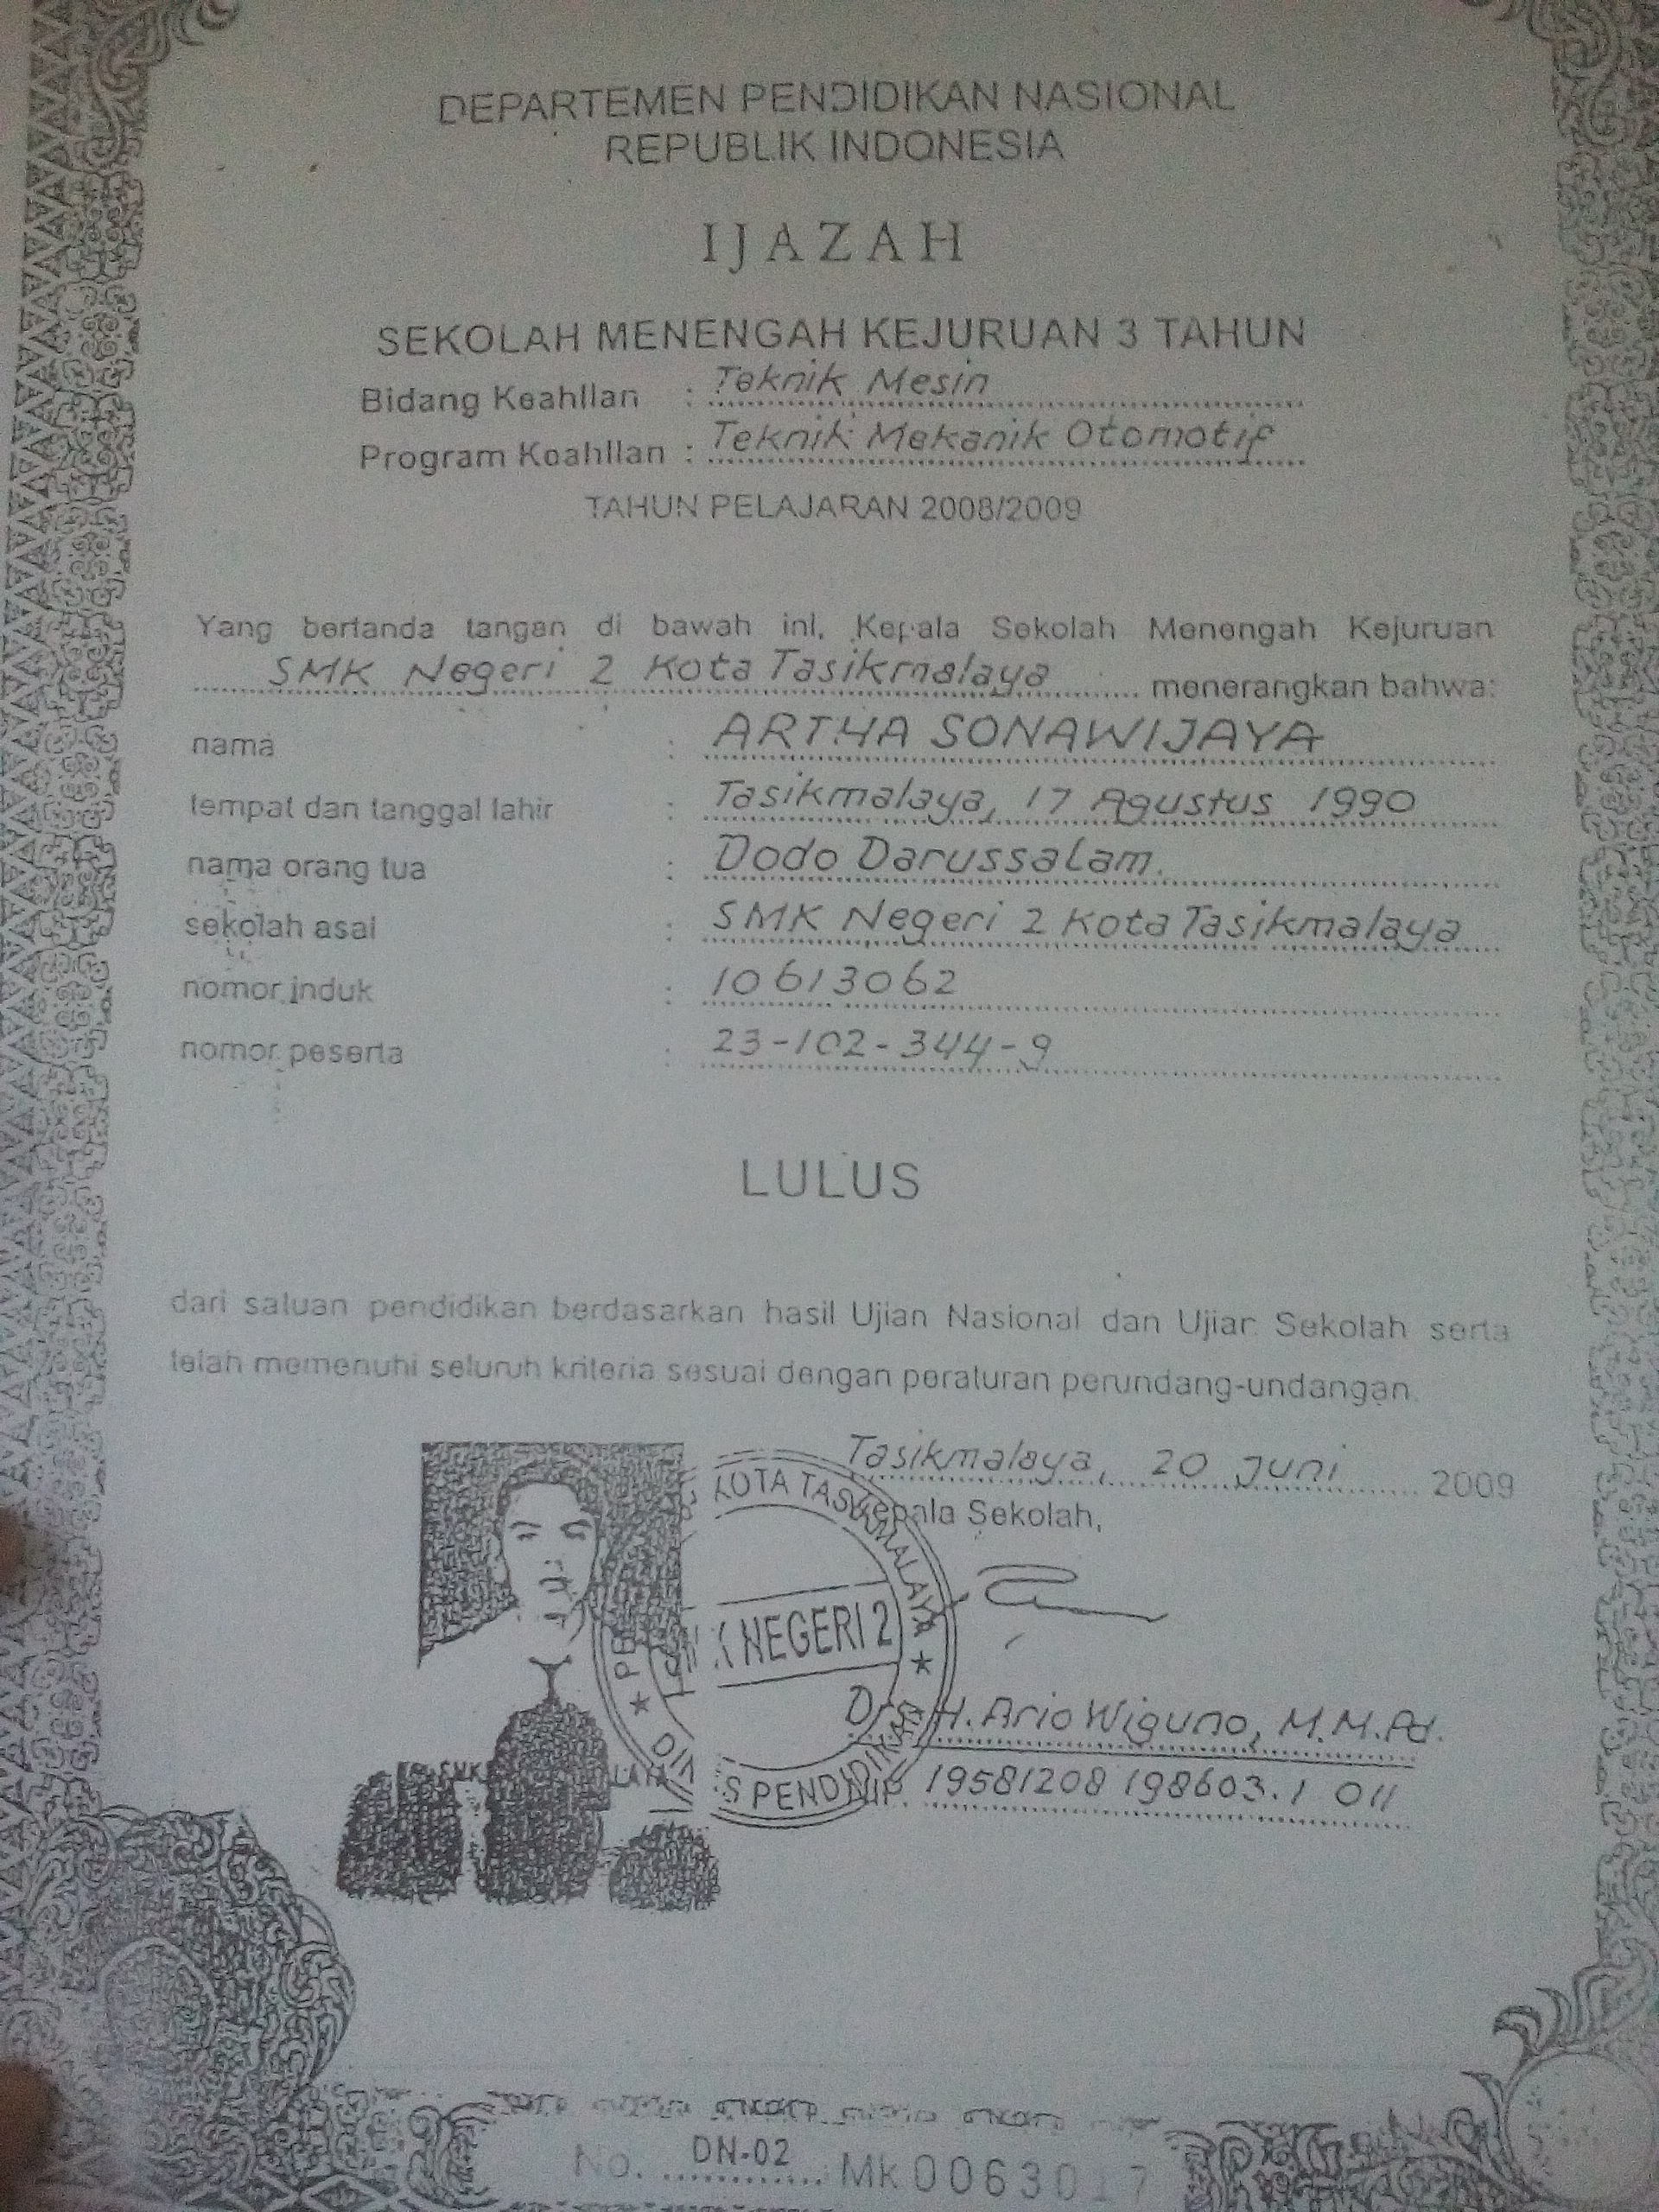 DEPARTEMEN PENDIDIKAN NASIONAL
REPUBLIK INDONESIA
IJAZAH
SEKOLAH MENENGAH KEJURUAN 3 TAHUN
Bidang Keahlian : Teknik Mesin
Program Keahlian : Teknik Mekanik Otomotif
TAHUN PELAJARAN 2008/2009
Yang bertanda tangan di bawah ini, Kepala Sekolah Menengah Kejuruan
SMK Negeri 2 Kota Tasikmalaya menerangkan bahwa:
nama : ARTHA SONAWIJAYA
tempat dan tanggal lahir : Tasikmalaya, 17 Agustus 1990
nama orang tua : Dodo Darussalam.
sekolah asal : SMK Negeri 2 Kota Tasikmalaya
nomor induk : 10613062
nomor peserta : 23-102-344-9
LULUS
dari satuan pendidikan berdasarkan hasil Ujian Nasional dan Ujian Sekolah serta
telah memenuhi seluruh kriteria sesuai dengan peraturan perundang-undangan.
Tasikmalaya, 20 Juni 2009
Kepala Sekolah,
KOTA TASIKMALAYA
NEGERI 2
PENDIDIKAN
H. Ario Wiguno, M.M.Pd.
NIP. 19581208 198603.1 011
No. DN-02 Mk 0063017